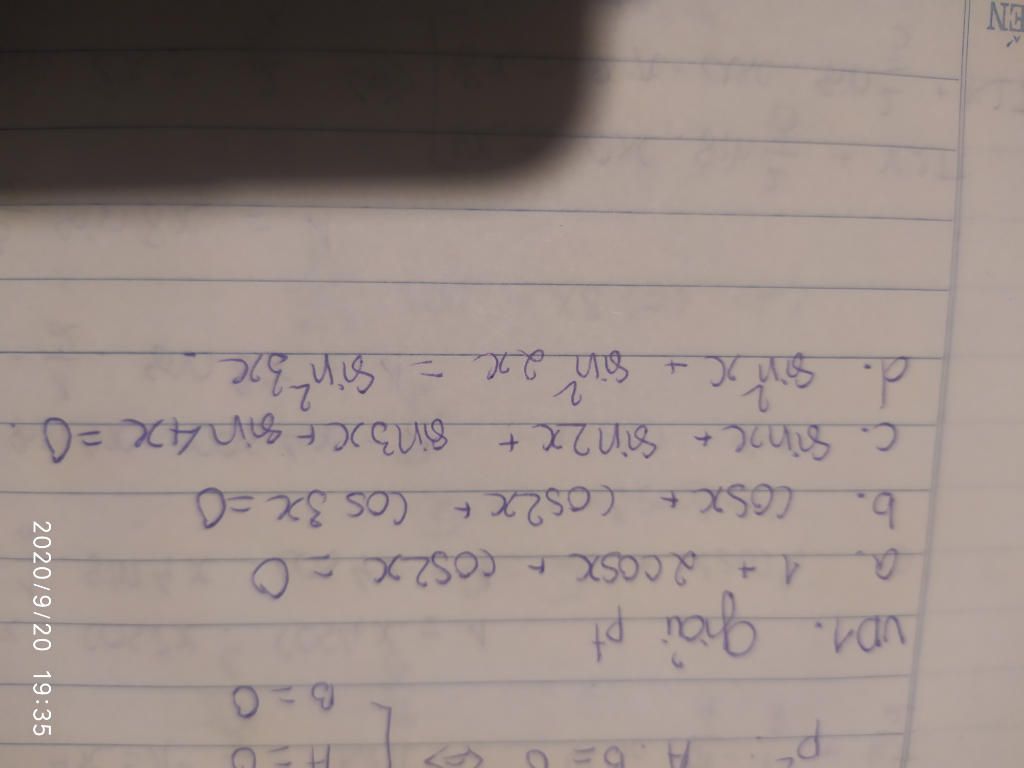 p²: A.B = 0 <=> [ A = 0
B = 0
VD1. Giải pt
a. 1 + 2cosx + cos2x = 0
b. cosx + cos2x + cos3x = 0
c. sinx + sin2x + sin3x + sin4x = 0.
d. sin²x + sin²2x = sin²3x.
2020/9/20 19:35